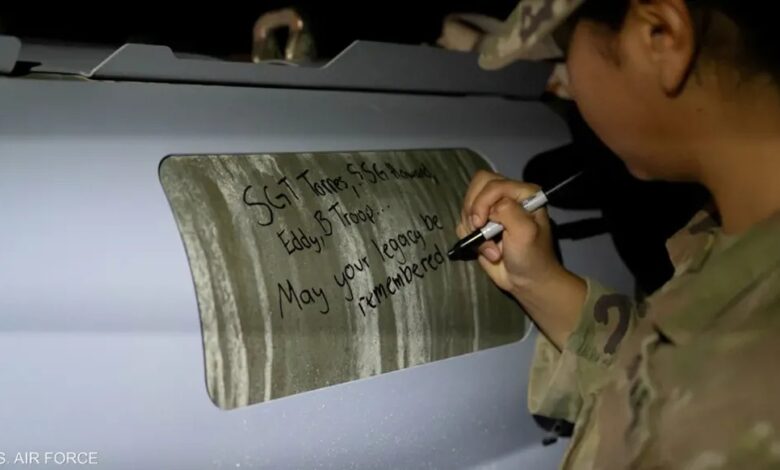 SGT Torres, SSG Howard,
Eddy, B Troop...
May your legacy be
remembered
S. AIR FORCE